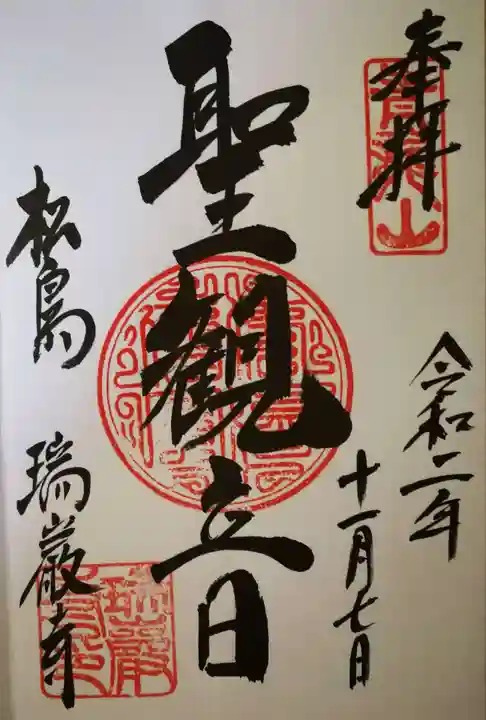 奉拝
青龍山
令和二年
十一月七日
聖観音
松島
瑞巌寺